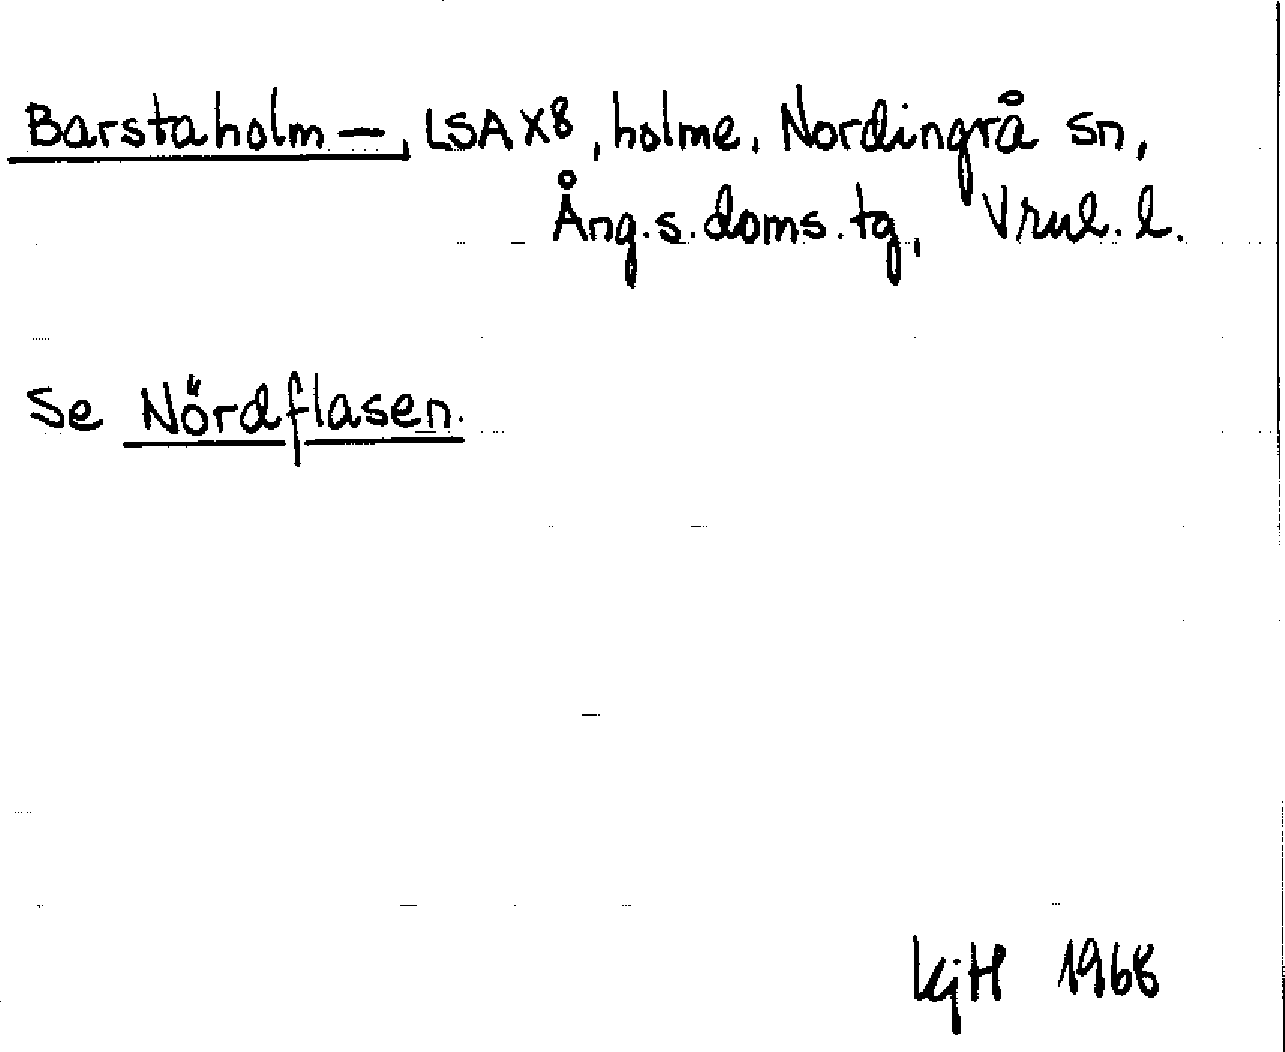 Barstaholm –, LSA X8, holme, Nordingrå sn,
Ång.s.doms.tg, Vrnl. l.
Se Nördflasen.
KjH 1968